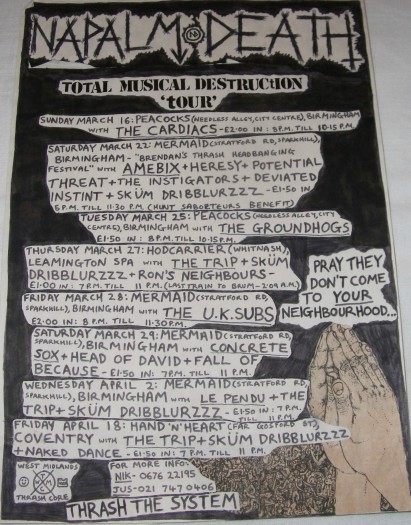 NAPALM DEATH
TOTAL MUSICAL DESTRUCtION
'tOUR'
SUNDAY MARCH 16: PEACOCKS (NEEDLESS ALLEY, CITY CENTRE), BIRMINGHAM
WITH THE CARDIACS - £2·00 IN : 8 P.M. TILL 10·15 P.M.
SATURDAY MARCH 22: MERMAID (STRATFORD RD, SPARKHILL),
BIRMINGHAM - "BRENDAN'S THRASH HEADBANGING
FESTIVAL" WITH AMEBIX + HERESY + POTENTIAL
THREAT + THE INSTIGATORS + DEVIATED
INSTINT + SKÜM DRIBBLURZZZ - £1·50 IN
6 P.M. TILL 11·30 P.M. (HUNT SABOTEURS BENEFIT)
TUESDAY MARCH 25: PEACOCKS (NEEDLESS ALLEY, CITY
CENTRE), BIRMINGHAM WITH THE GROUNDHOGS
£1·50 IN : 8 P.M. TILL 10·15 P.M.
THURSDAY MARCH 27: HODCARRIER (WHITNASH),
LEAMINGTON SPA WITH THE TRIP + SKÜM
DRIBBLURZZZ + RON'S NEIGHBOURS -
£1·00 IN : 7 P.M. TILL 11 P.M. (LAST TRAIN TO BRUM - 2·09 A.M.)
FRIDAY MARCH 28: MERMAID (STRATFORD RD,
SPARKHILL), BIRMINGHAM WITH THE U.K. SUBS
£2·00 IN : 8 P.M. TILL 11·30 P.M.
SATURDAY MARCH 29: MERMAID (STRATFORD RD,
SPARKHILL), BIRMINGHAM WITH CONCRETE
SOX + HEAD OF DAVID + FALL OF
BECAUSE - £1·50 IN : 7 P.M. TILL 11 P.M.
WEDNESDAY APRIL 2: MERMAID (STRATFORD RD,
SPARKHILL), BIRMINGHAM WITH LE PENDU + THE
TRIP + SKÜM DRIBBLURZZZ - £1·50 IN : 7 P.M.
TILL 11 P.M.
FRIDAY APRIL 18: HAND 'N' HEART (FAR GOSFORD ST),
COVENTRY WITH THE TRIP + SKÜM DRIBBLURZZZ
+ NAKED DANCE - £1·50 IN : 7 P.M. TILL 11 P.M.
PRAY THEY
DON'T COME
TO YOUR
NEIGHBOURHOOD...
WEST MIDLANDS
THRASH CORE
FOR MORE INFO:
NIK - 0676 22195
JUS - 021 747 0406
THRASH THE SYSTEM